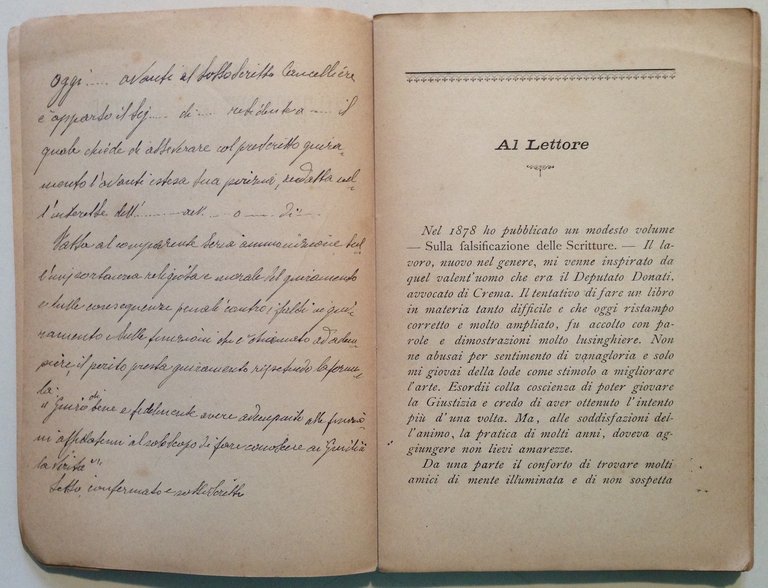 Oggi..... avanti al sottoscritto Cancelliere
è apparso il Sig..... di ..... residente a ..... il
quale chiede di asseverare col prescritto giura-
mento l'avanti estesa sua perizia, redatta nel-
l'interesse dell'....... nell'.... o .... di....
Fatta al comparente seria ammonizione sul-
l'importanza religiosa e morale del giuramento
e sulle conseguenze penali contro i falsi in giu-
ramento e sulle funzioni che è chiamato ad adem-
piere, il perito presta giuramento ripetendo la formu-
la:
"Giuro di bene e fedelmente avere adempiuto alle funzio-
ni affidatemi al solo scopo di fare conoscere ai Giudici
la verità".
Letto, confermato e sottoscritto
Al Lettore
Nel 1878 ho pubblicato un modesto volume
— Sulla falsificazione delle Scritture. — Il la-
voro, nuovo nel genere, mi venne inspirato da
quel valent'uomo che era il Deputato Donati,
avvocato di Crema. Il tentativo di fare un libro
in materia tanto difficile e che oggi ristampo
corretto e molto ampliato, fu accolto con pa-
role e dimostrazioni molto lusinghiere. Non
ne abusai per sentimento di vanagloria e solo
mi giovai della lode come stimolo a migliorare
l'arte. Esordii colla coscienza di poter giovare
la Giustizia e credo di aver ottenuto l'intento
più d'una volta. Ma, alle soddisfazioni del-
l'animo, la pratica di molti anni, doveva ag-
giungere non lievi amarezze.
Da una parte il conforto di trovare molti
amici di mente illuminata e di non sospetta